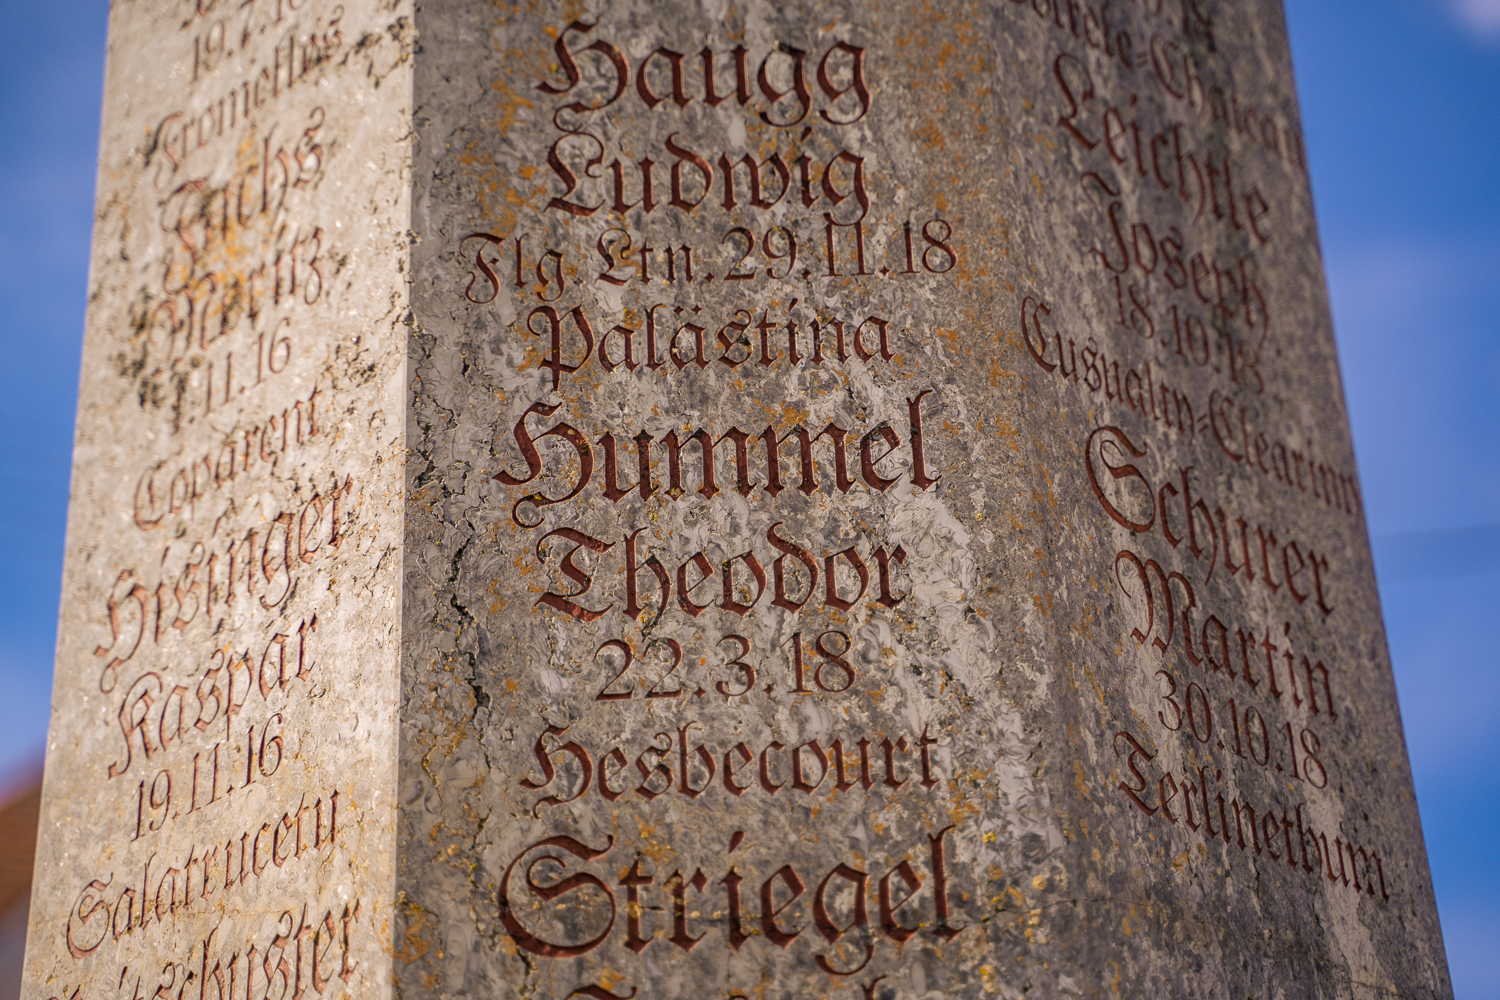 19.7.18
Fromellus
Fuchs
Moritz
11.16
Coparent
Hisinger
Kaspar
19.11.16
Salatrucetu
Schuster
Haugg
Ludwig
Flg Ltn. 29.11.18
Palästina
Hummel
Theodor
22.3.18
Hesbecourt
Striegel
Leichtle
Joseph
18.10.18
Cusualty-Clearinn
Schurer
Martin
30.10.18
Terlinetburn